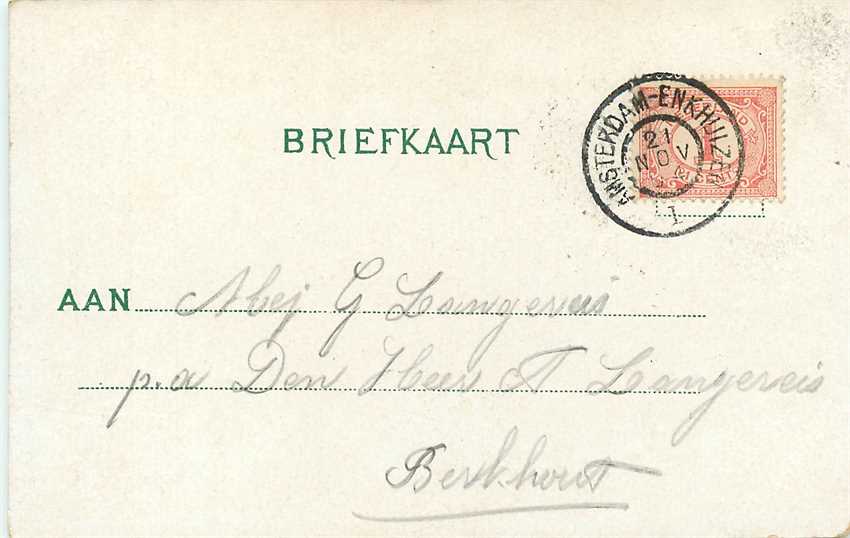 BRIEFKAART
AMSTERDAM-ENKHUIZEN
21
NOV
1
AAN Mej G Langereis
p.a Den Heer A Langereis
Berkhout